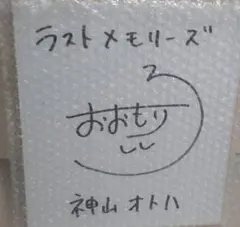 ラストメモリーズ
おおもり
神山オトハ